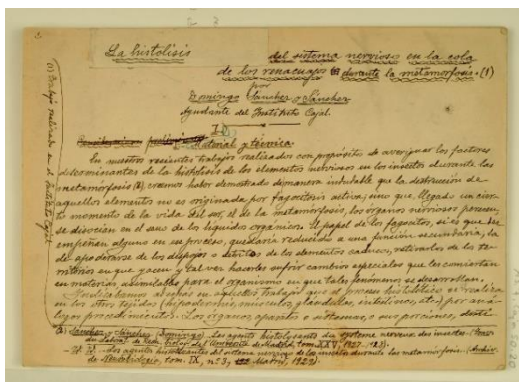 La histolisis del sistema nervioso en la cola
de los renacuajos durante la metamorfosis. (1)
por
Domingo Sánchez y Sánchez
Ayudante del Instituto Cajal.
I
Material y técnica.
En nuestros recientes trabajos realizados con propósito de averiguar los factores
determinantes de la histolisis de los elementos nerviosos en los insectos durante las
metamorfosis (2), creemos haber demostrado de manera indudable que la destrucción de
aquellos elementos no es originada por fagocitosis activa, sino que, llegado un cier-
to momento de la vida del ser, el de la metamorfosis, los órganos nerviosos perecen,
se disocian en el seno de los líquidos orgánicos. El papel de los fagocitos, si es que des-
empeñan alguno en ese proceso, quedaría reducido a una función secundaria, la
de apoderarse de los despojos o detritus de los elementos caducos, retirarlos de los te-
rritorios en que yacen y tal vez hacerles sufrir cambios especiales que les conviertan
en materias asimilables para el organismo en que tales fenómenos se desarrollan.
Indicábamos además en aquellos trabajos que el proceso histolítico se realiza
en los otros tejidos (hipodermis, músculos, glándulas, intestinos, etc.) por aná-
logos procedimientos. Los órganos, aparatos o sistemas, o sus porciones, desti-
(2) Sánchez y Sánchez (Domingo). Les agents histolysants du système nerveux des insectes. (Trav.
du Labor. de Rech. biolog. de l'Université de Madrid, tom. XXV, 1927-1928).
Id. Id. Los agentes histolizantes del sistema nervioso de los insectos durante las metamorfosis. (Archiv.
de Neurobiología, tom. IX, nº 3, Madrid, 1929).
(1) Trabajo realizado en el Instituto Cajal